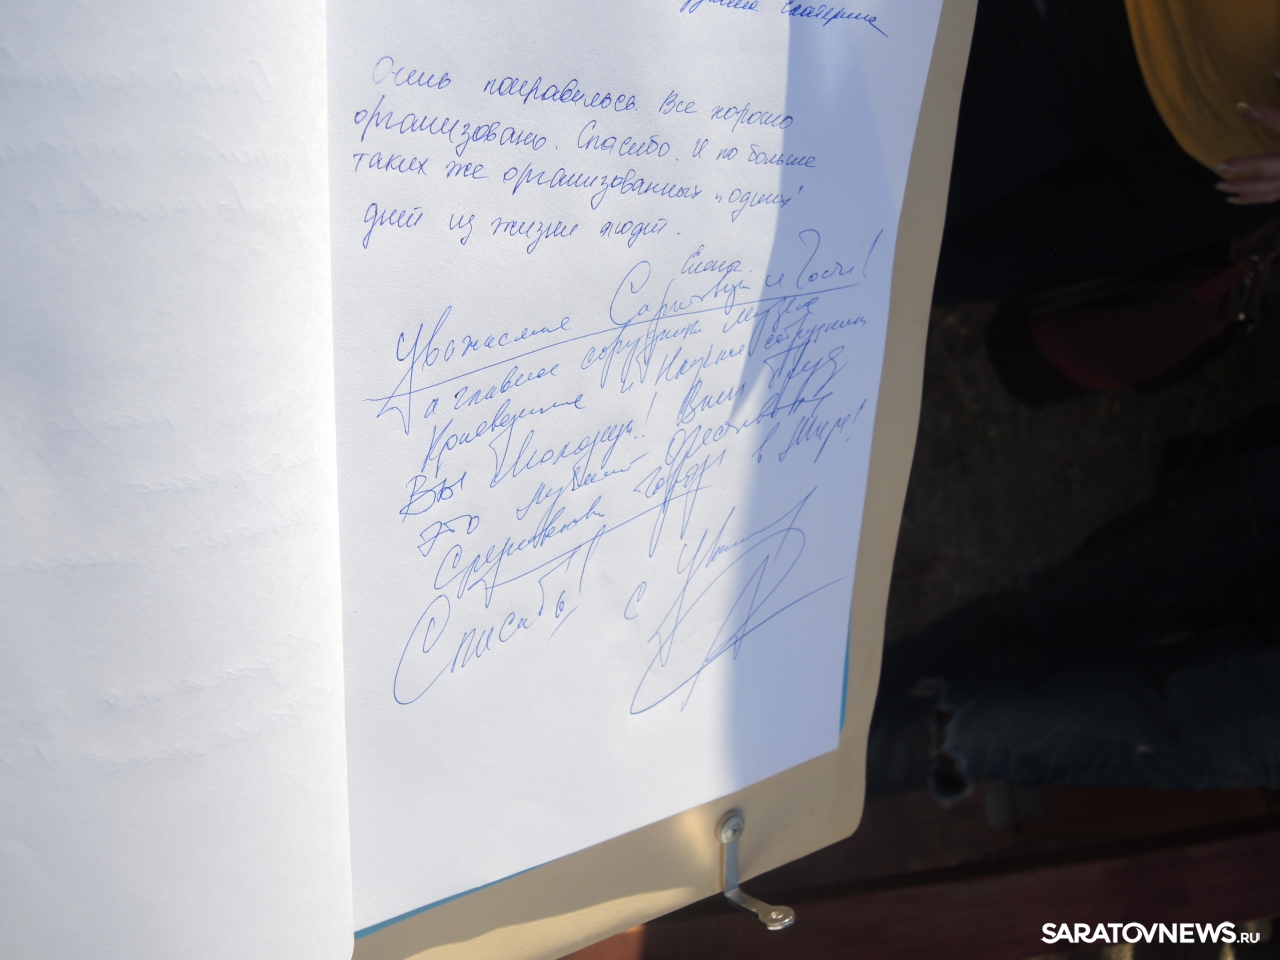 Екатерина
Очень понравилось. Все хорошо
организовано. Спасибо. И по больше
таких же организованных "одних"
дней из жизни людей.
Елена.
Уважаемые Саратовцы и Гости!
а главное сотрудники музея
Краеведения и Научные сотрудники
Вы Молодцы! Ваш Труд
это
в Мире!
Спасибо! С
SARATOVNEWS.RU